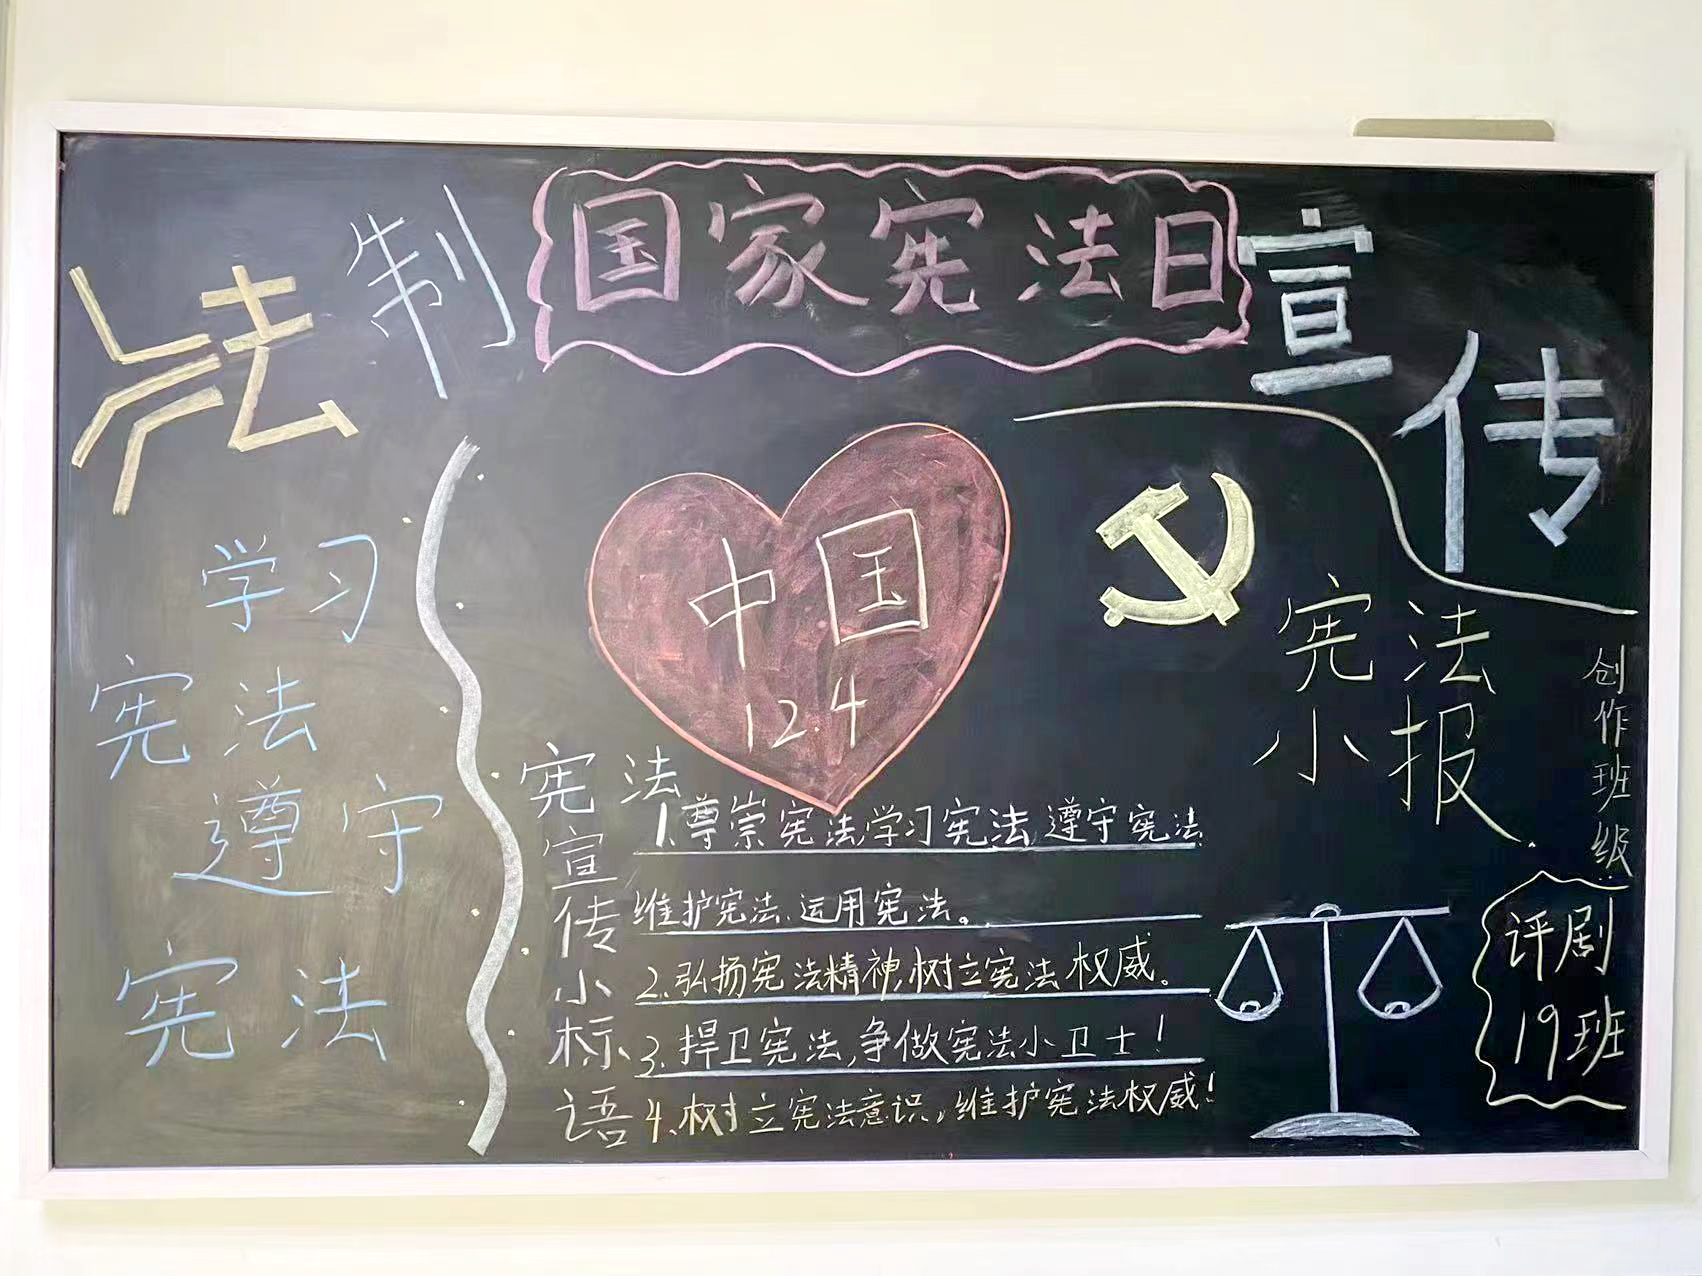 国家宪法日
法制
宣传
学习
宪法
遵守
宪法
中国
12.4
宪法
小报
宪法
宣传小标语
1.尊崇宪法,学习宪法,遵守宪法
维护宪法、运用宪法。
2.弘扬宪法精神,树立宪法权威。
3.捍卫宪法,争做宪法小卫士!
4.树立宪法意识,维护宪法权威!
创作班级
评剧
19班